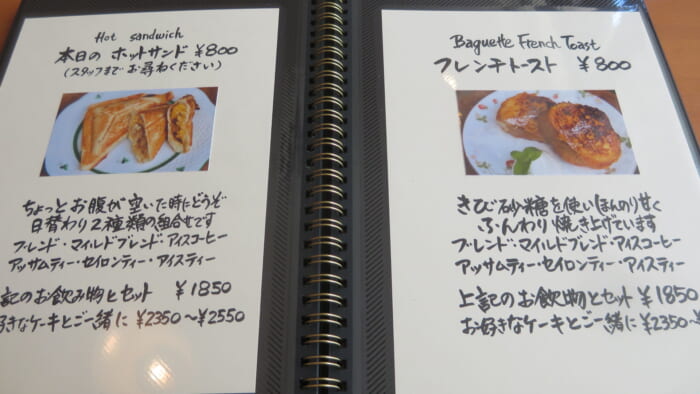 Hot sandwich
本日の ホットサンド ¥800
(スタッフまで お尋ねください)
ちょっと お腹が 空いた時にどうぞ
日替わり 2種類の組合せです
ブレンド・マイルドブレンド・アイスコーヒー
アッサムティー・セイロンティー・アイスティー
記のお飲み物とセット ¥1850
好きなケーキとご一緒に ¥2350〜¥2550
Baguette French Toast
フレンチトースト ¥800
きび砂糖を使いほんのり甘く
ふんわり 焼き上げています
ブレンド・マイルドブレンド・アイスコーヒー
アッサムティー・セイロンティー・アイスティー
上記のお飲物とセット ¥1850
お好きなケーキとご一緒に ¥2350〜